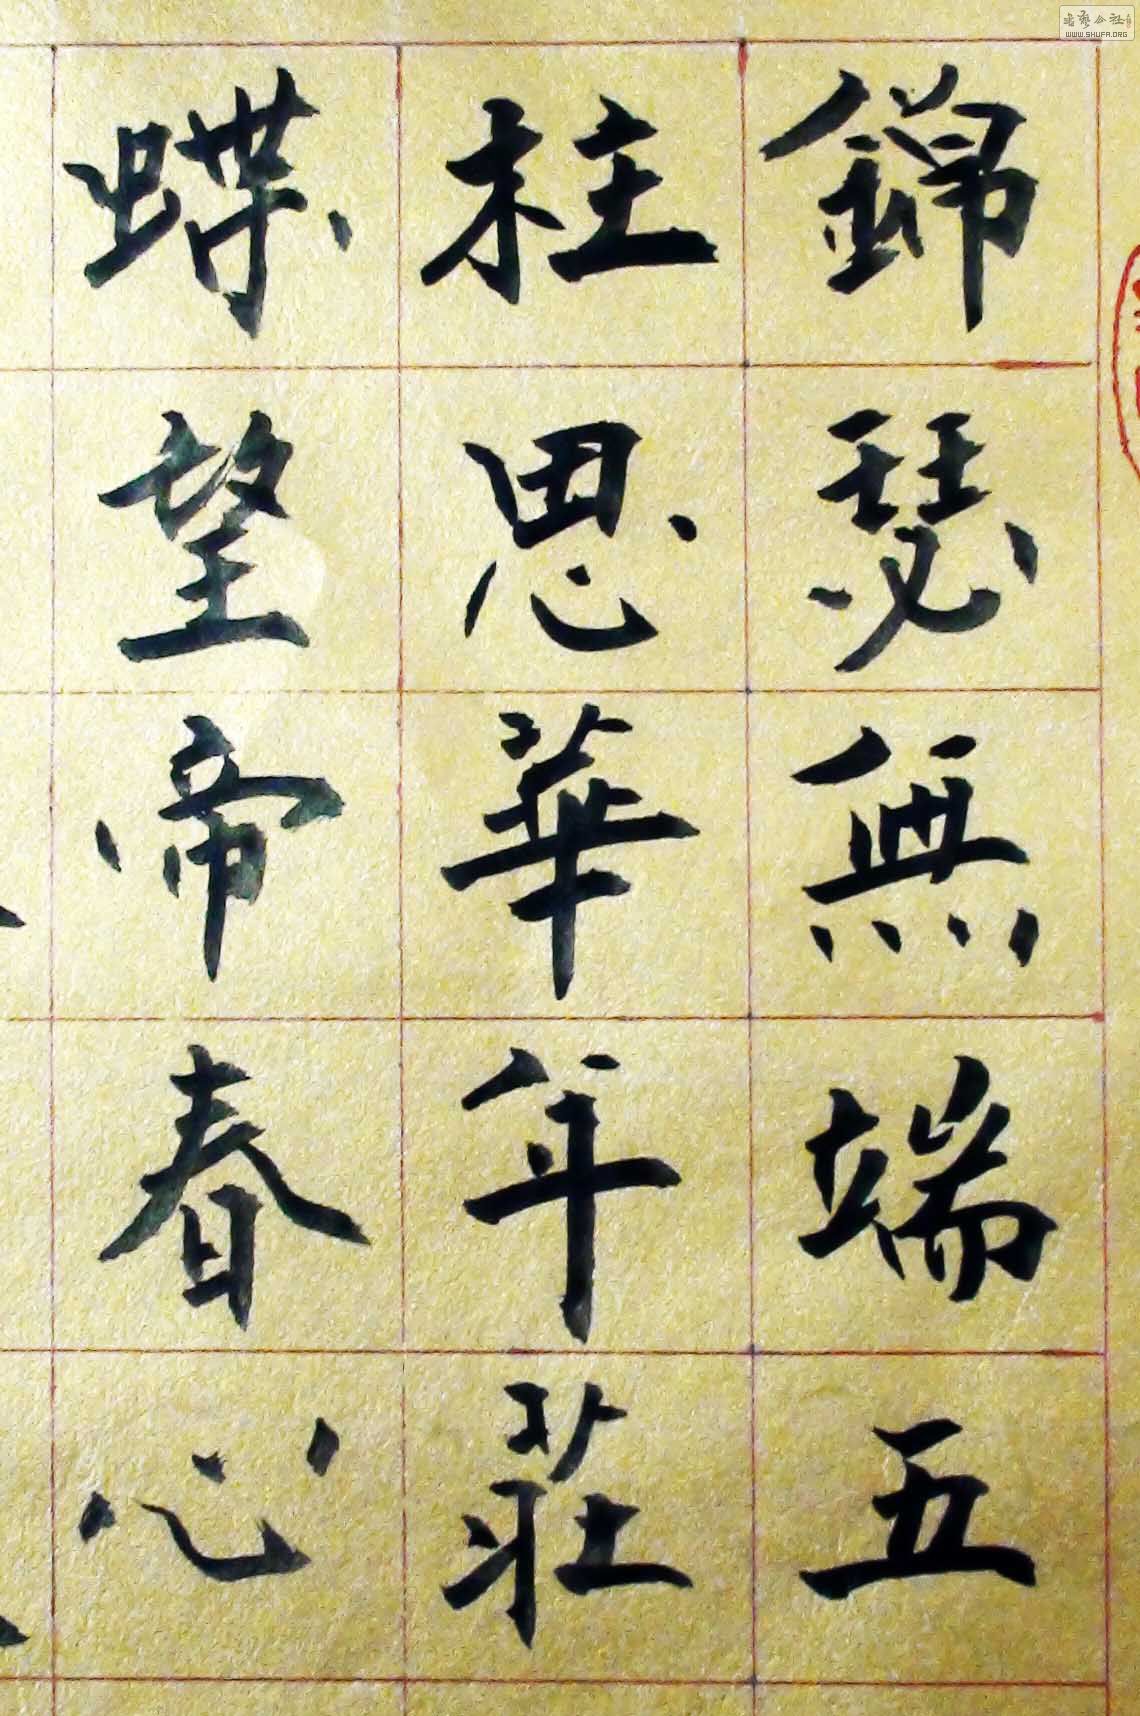 錦瑟無端五
柱思華年莊
蝶望帝春心
书艺公社
WWW.SHUFA.ORG